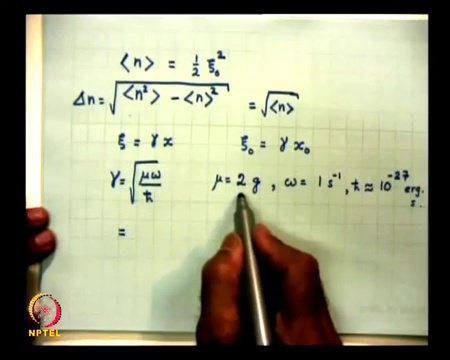 <n> = 1/2 ξ₀²
Δn = √(<n²> − <n>²) = √<n>
ξ = γx ξ₀ = γx₀
γ = √(μω/ħ) μ = 2 g , ω = 1 s⁻¹, ħ ≈ 10⁻²⁷ erg. s.
=
NPTEL